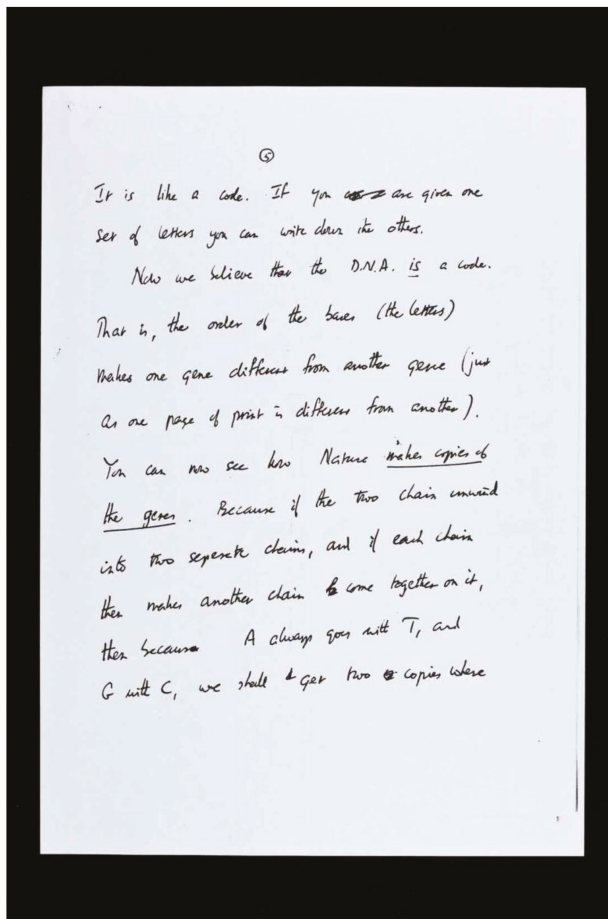 5
It is like a code. If you are given one
set of letters you can write down the others.
Now we believe that the D.N.A. is a code.
That is, the order of the bases (the letters)
makes one gene different from another gene (just
as one page of print is different from another).
You can now see how Nature makes copies of
the genes. Because if the two chain unwind
into two seperate chains, and if each chain
then makes another chain come together on it,
then because A always goes with T, and
G with C, we shall get two copies where